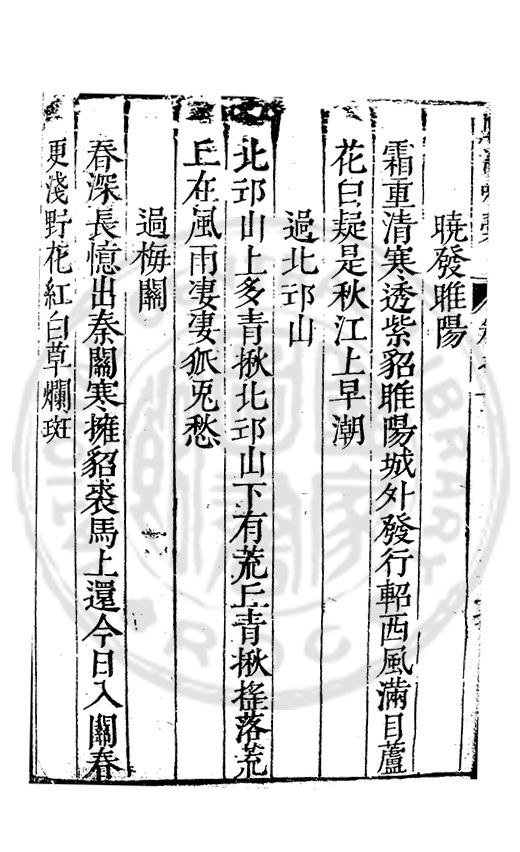 曉發睢陽
霜重清寒透紫貂睢陽城外發行軺西風滿目蘆
花白疑是秋江上早潮
過北邙山
北邙山上多青楸北邙山下有荒丘青楸搖落荒
丘在風雨凄凄狐兎愁
過梅關
春深長憶出秦關寒擁貂裘馬上還今日入關春
更淺野花紅白草斕斑